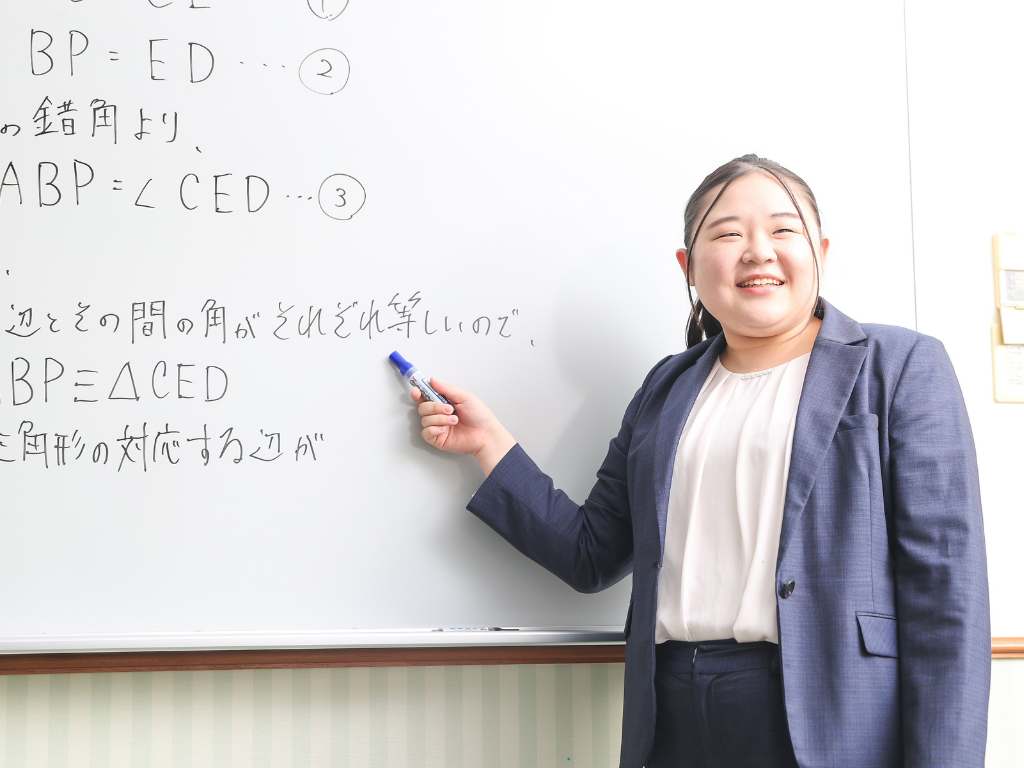 CE ①
BP = ED ... ②
の錯角より、
ABP = ∠CED ... ③
辺とその間の角がそれぞれ等しいので、
BP ≡ △CED
三角形の対応する辺が